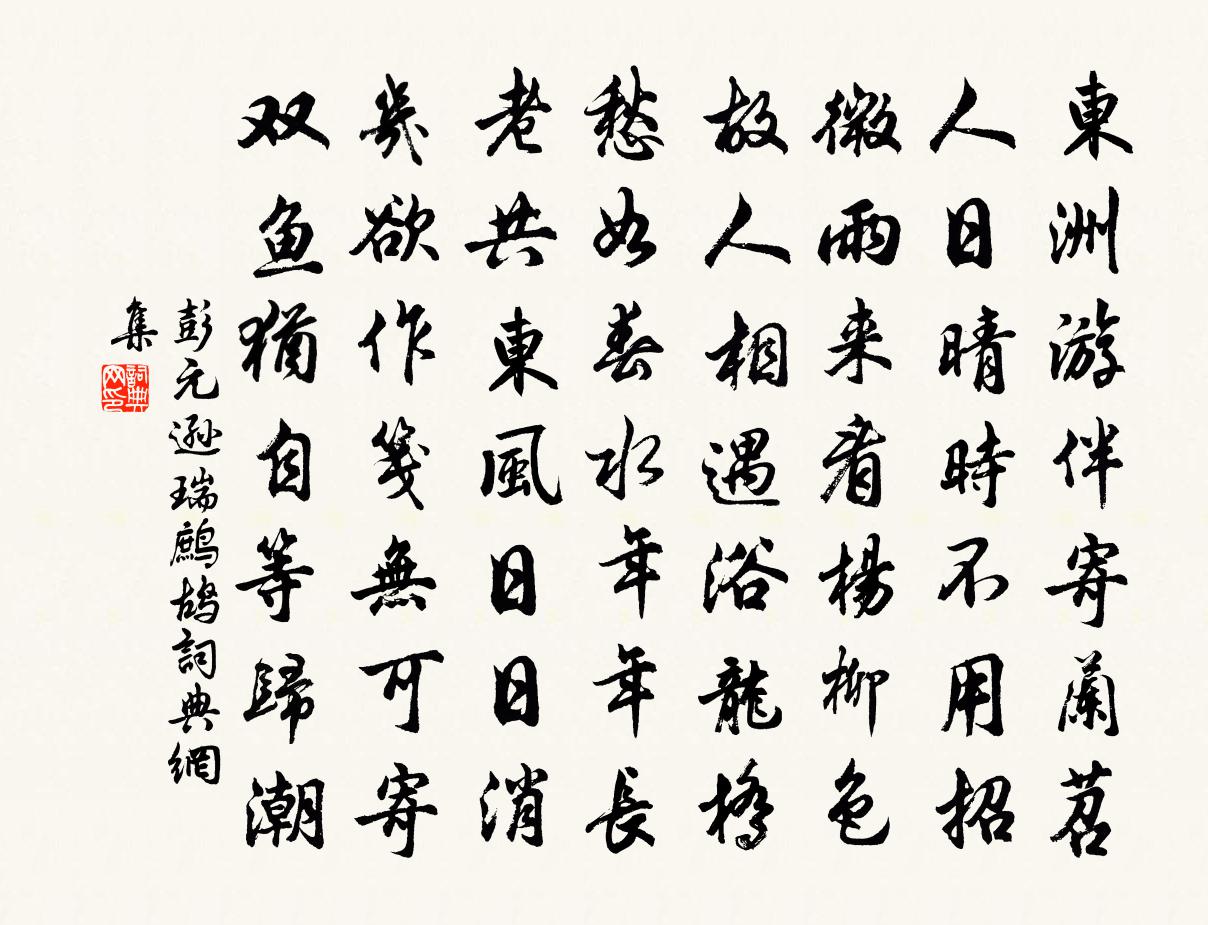 東洲游伴寄蘭苕
人日晴時不用招
微雨来看楊柳色
故人相遇浴龍橋
愁如春水年年長
老共東風日日消
幾欲作箋無可寄
双魚猶自等歸潮
彭元遜瑞鷓鴣詞典網
集
詞典網印